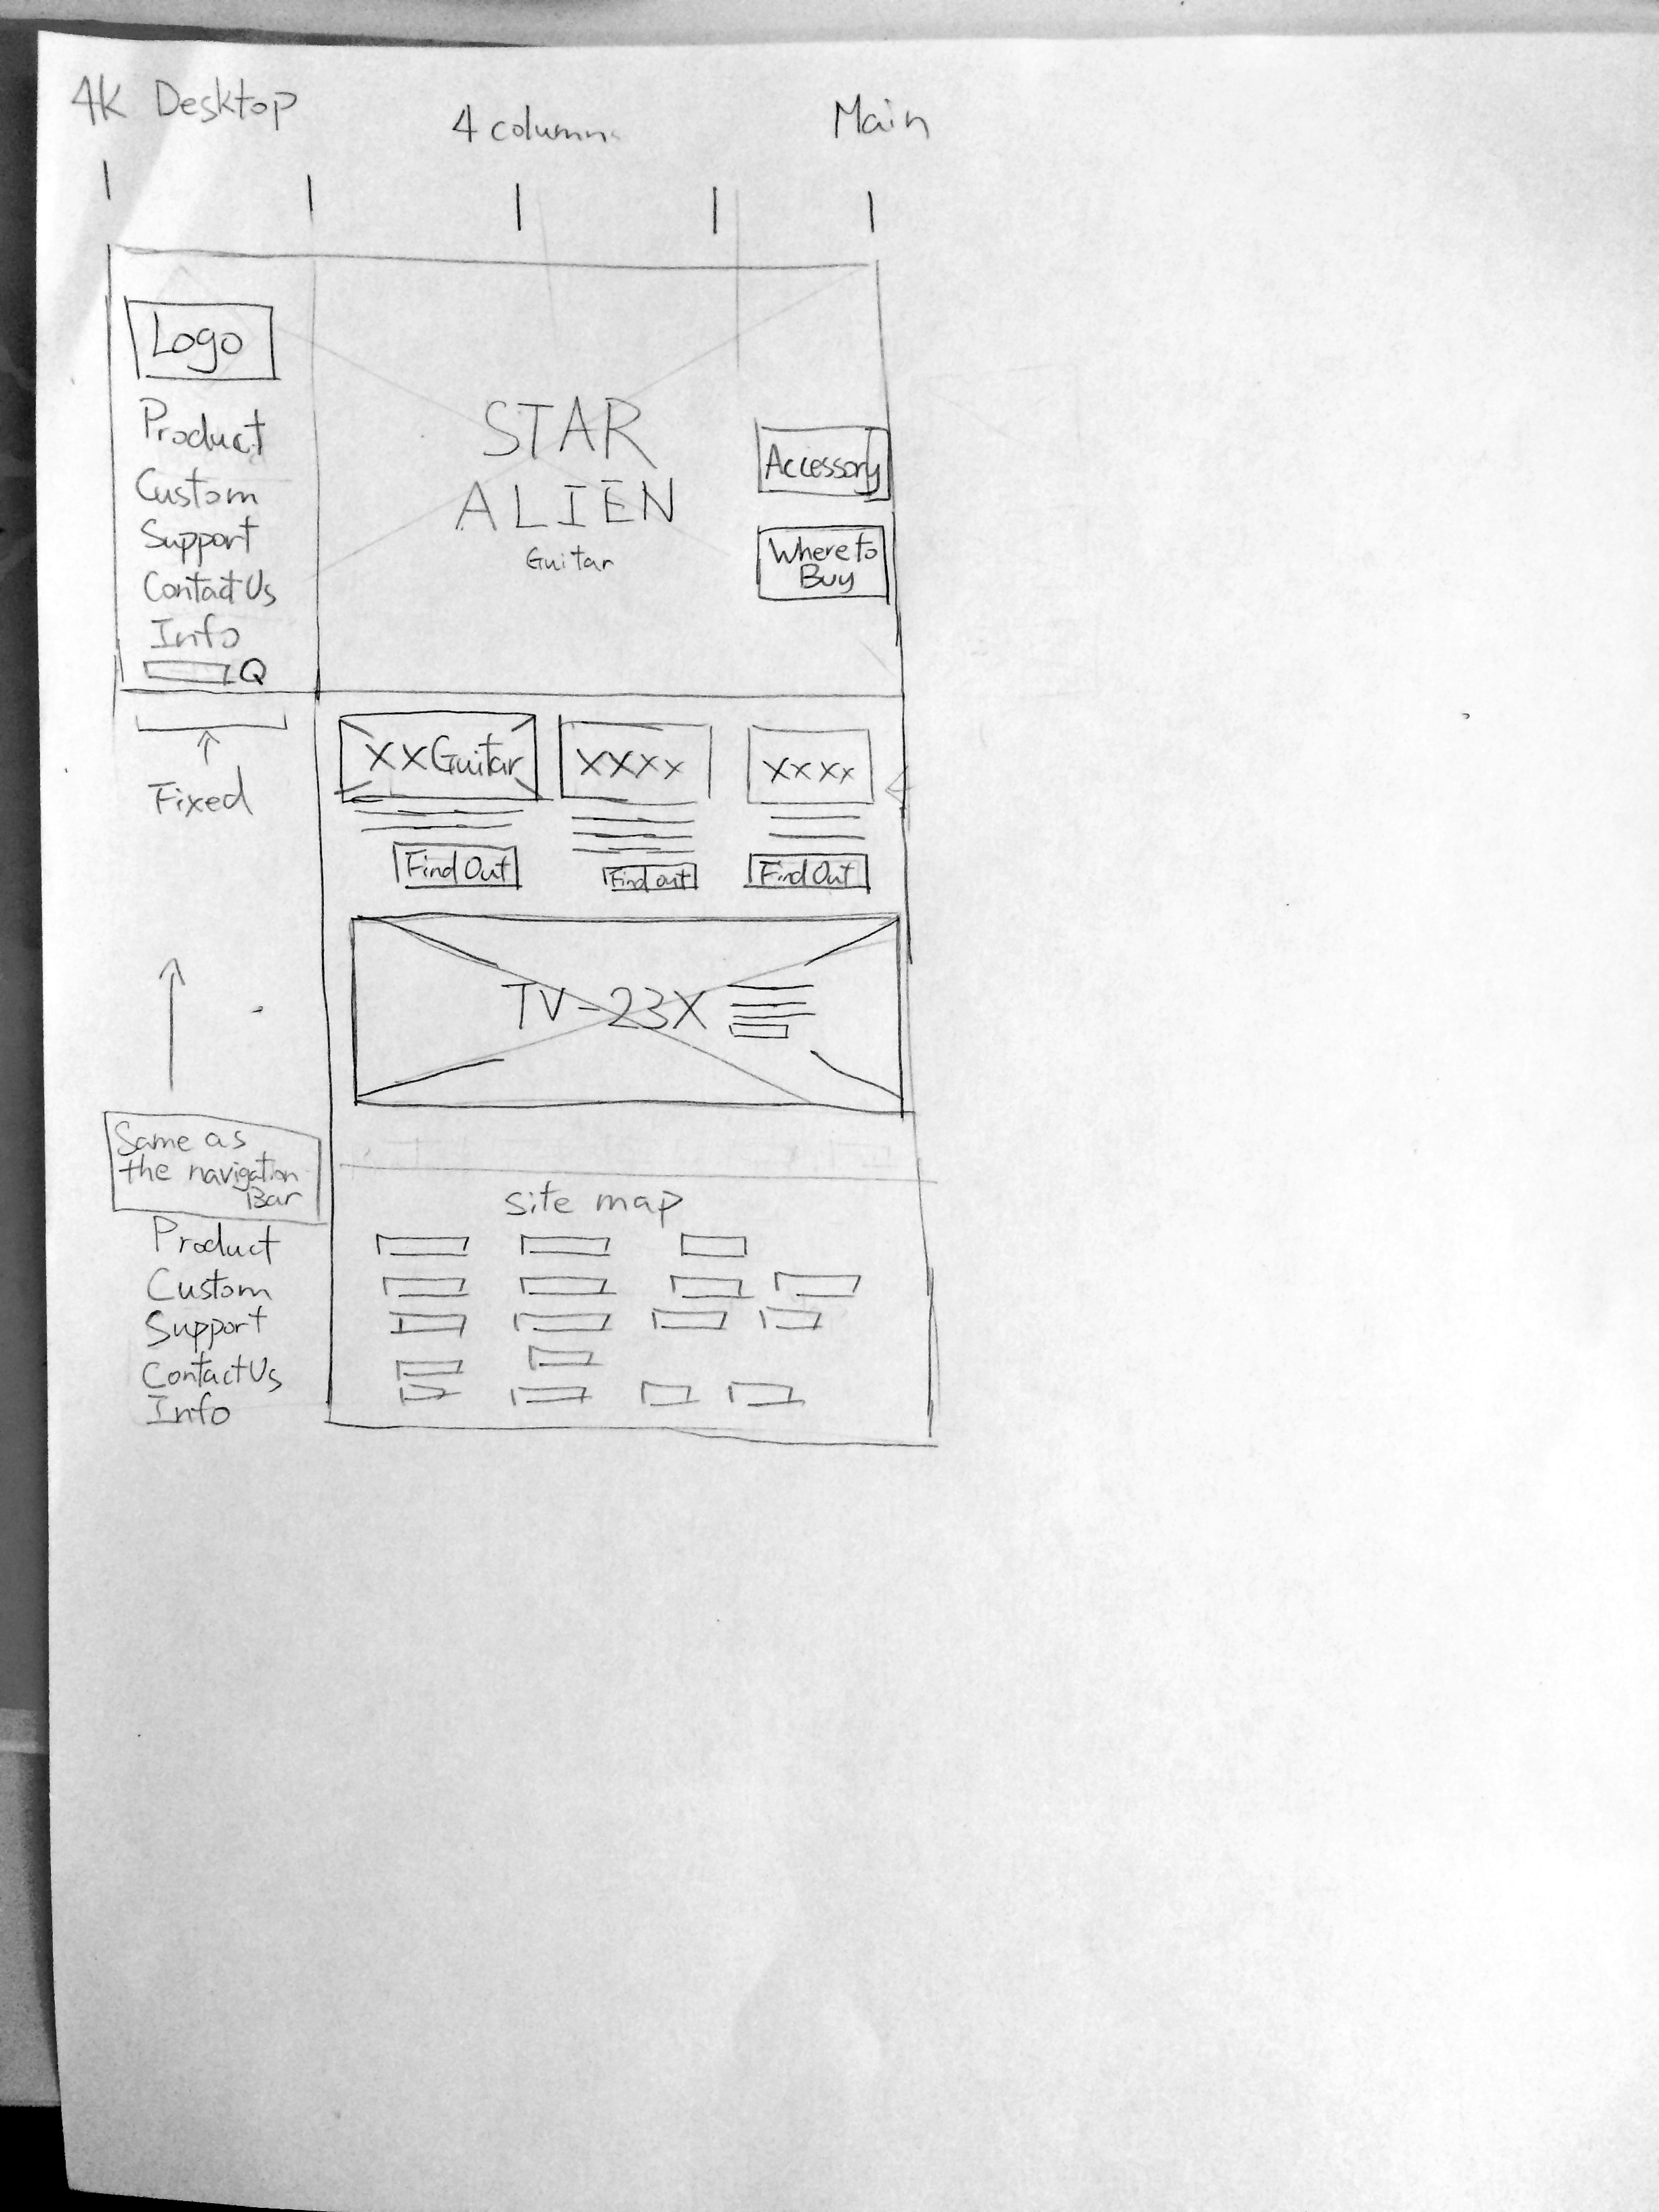 4K Desktop
4 columns
Main
Logo
Product
Custom
Support
Contact Us
Info
Q
STAR
ALIEN
Guitar
Accessory
Where to
Buy
Fixed
XXGuitar
XXXX
XXXX
Find Out
Find out
Find Out
TV-23X
Same as
the navigation
Bar
Product
Custom
Support
Contact Us
Info
site map